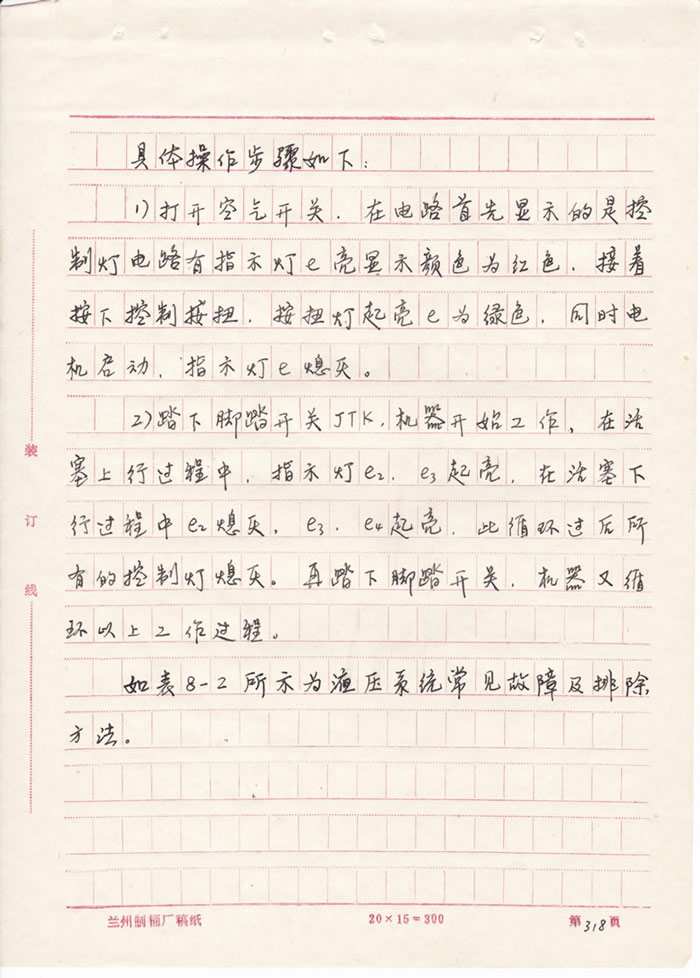 具体操作步骤如下：
1)打开空气开关，在电路首先显示的是控
制灯电路有指示灯e亮显示颜色为红色，接着
按下控制按扭，按扭灯起亮e为绿色，同时电
机启动，指示灯e熄灭。
2)踏下脚踏开关JTK，机器开始工作，在活
塞上行过程中，指示灯e2，e3起亮，在活塞下
行过程中e2熄灭，e3，e4起亮，此循环过后所
有的控制灯熄灭。再踏下脚踏开关，机器又循
环以上工作过程。
如表8-2所示为液压系统常见故障及排除
方法。
装
订
线
兰州制桶厂稿纸 20×15=300 第318页